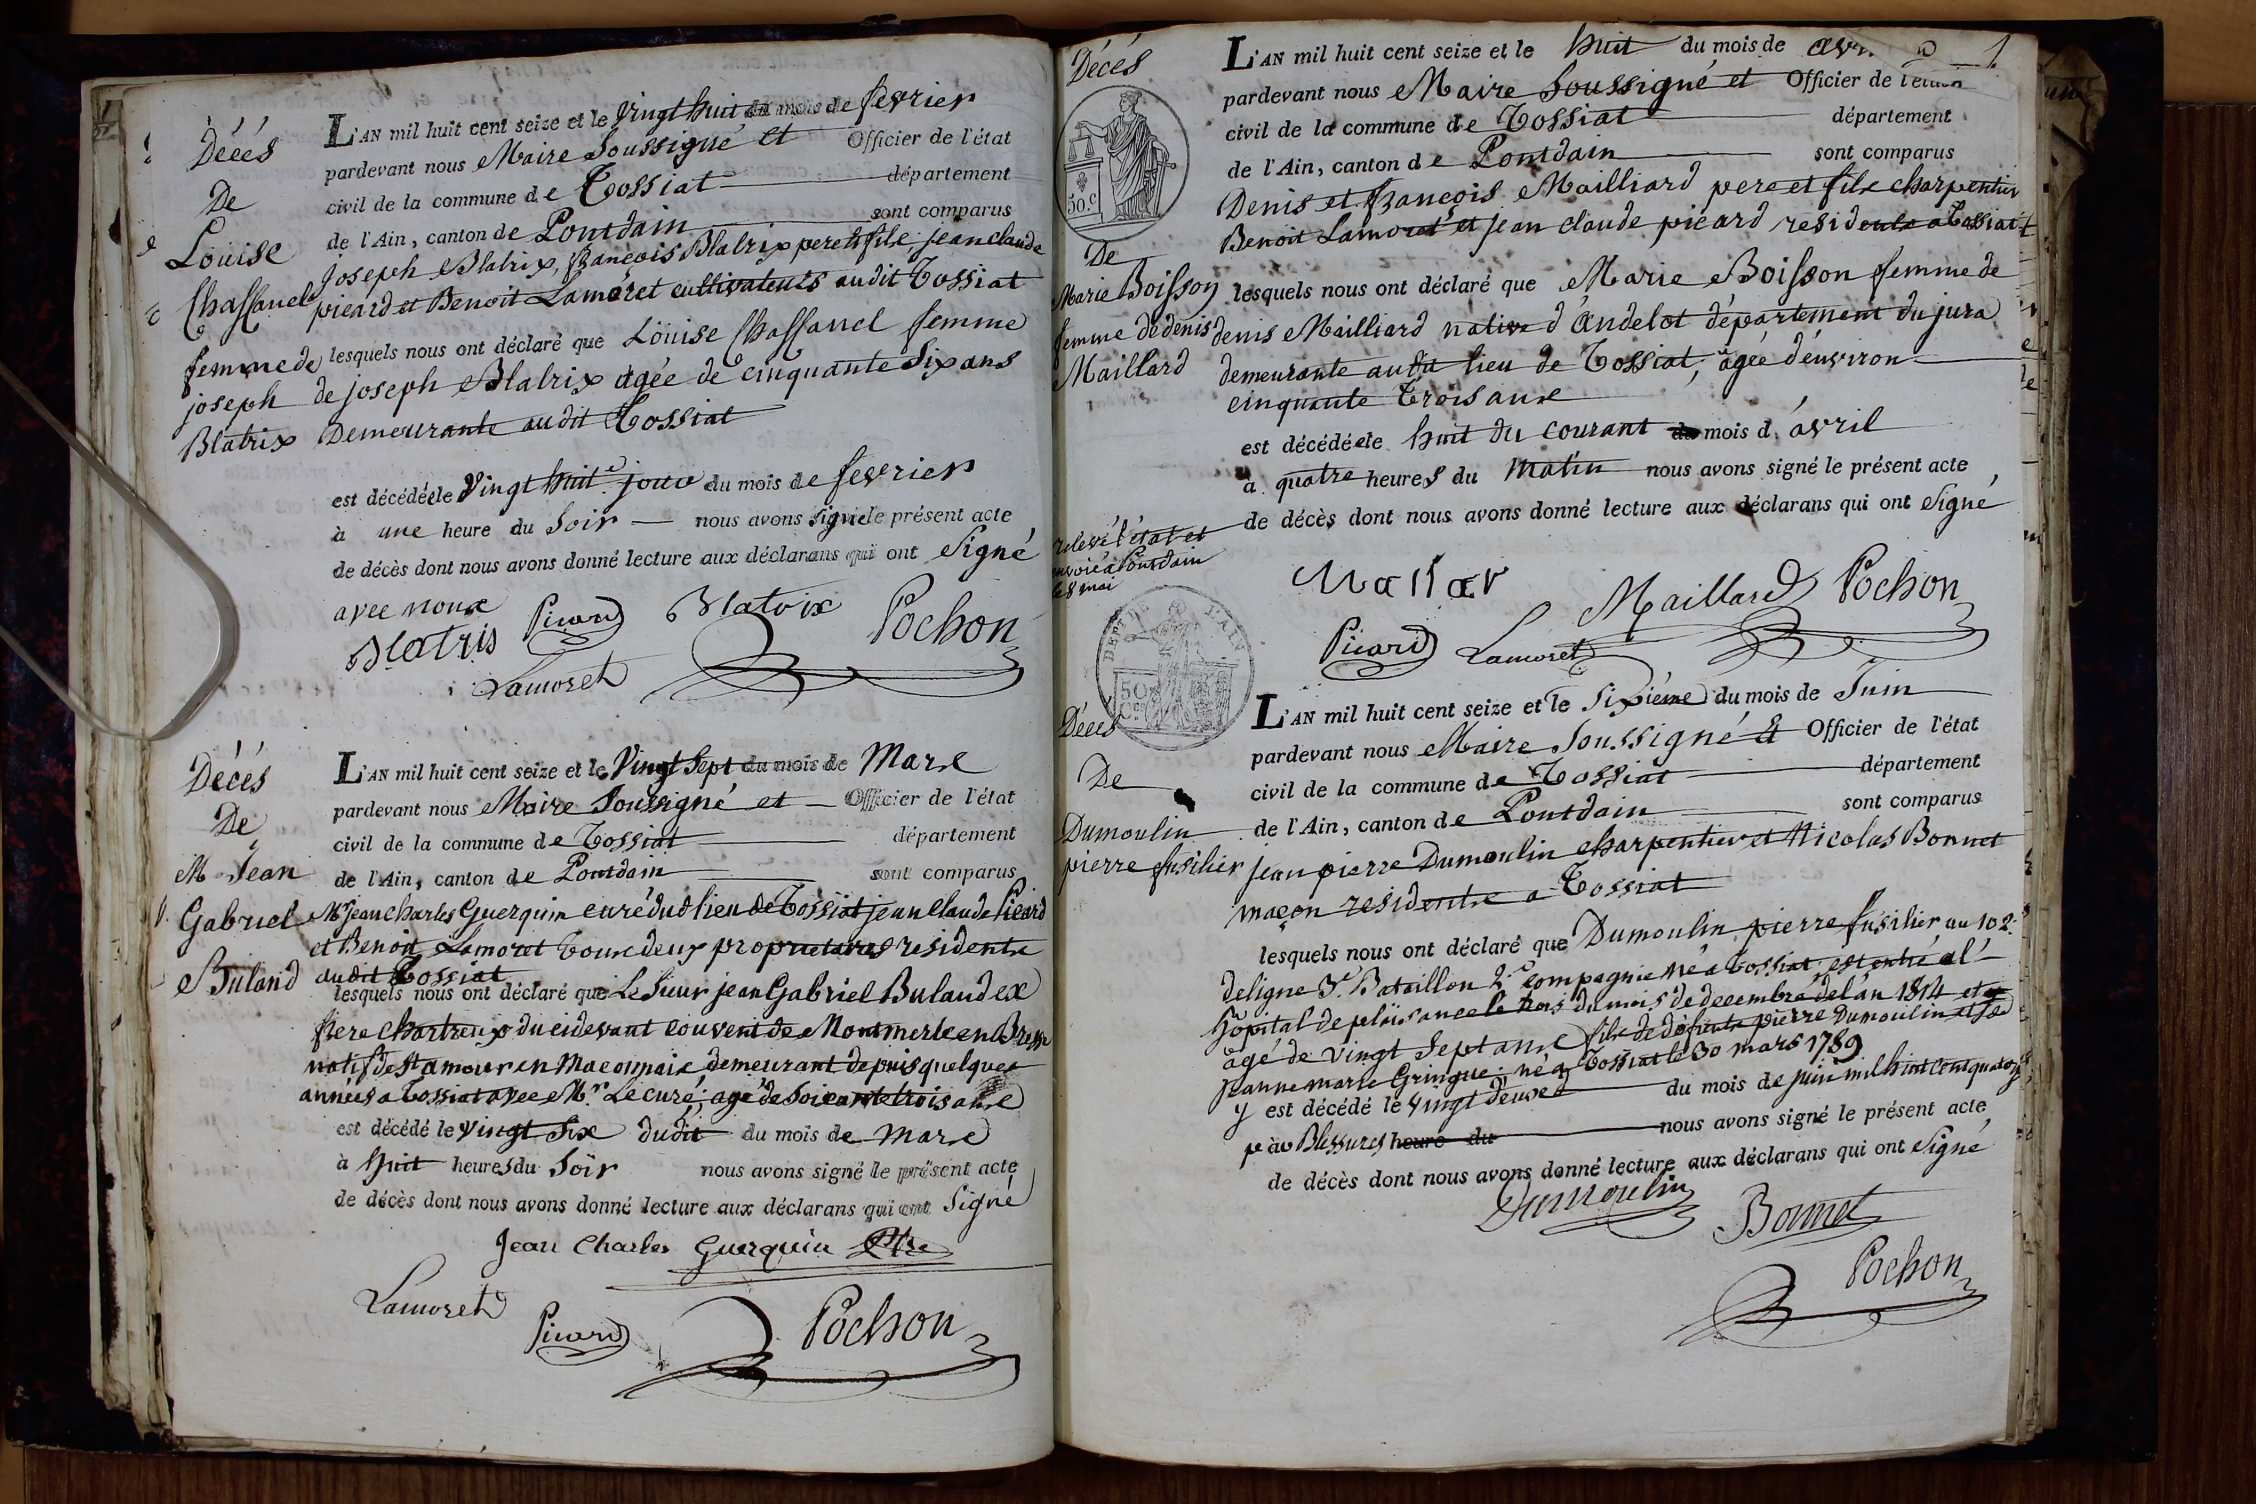 Décès
De
Louise
Chassanel
femme de
joseph
Blatrix
L'AN mil huit cent seize et le vingt huit du mois de fevrier
pardevant nous Maire Soussigné et Officier de l'état
civil de la commune de Tossiat département
de l'Ain, canton de Pontdain sont comparus
joseph Blatrix, françois Blatrix pere et fils, jean claude
picard et Benoit Lamoret cultivateurs audit Tossiat
lesquels nous ont déclaré que Louise Chassanel femme
de joseph Blatrix agée de cinquante Six ans
Demeurante audit Tossiat
est décédée le vingt huit.e jour du mois de fevrier
à une heure du Soir nous avons signé le présent acte
de décès dont nous avons donné lecture aux déclarans qui ont Signé
avec nous
Blatris Picard Blatrix Pochon
Lamoret
Décés
De
M Jean
Gabriel
Buland
L'AN mil huit cent seize et le Vingt Sept du mois de Mars
pardevant nous Maire Soussigné et Officier de l'état
civil de la commune de Tossiat département
de l'Ain, canton de Pontdain sont comparus
Mr jean charles Guerquin curé dud lieu de Tossiat jean Claude Picard
et Benoit Lamoret tous deux propriétaires residents
audit Tossiat
lesquels nous ont déclaré que Le Sieur jean Gabriel Buland ex
frere chartreux du cidevant couvent de Montmerle en Bresse
natif de St amour en Maconnais, demeurant depuis quelques
années a Tossiat avec Mr. Le curé; agé de Soixante trois ans
est décédé le vingt Six dudit du mois de Mars
à huit heures du Soir nous avons signé le présent acte
de décès dont nous avons donné lecture aux déclarans qui ont Signé
Jean Charles Guerquin Ptre
Lamoret Picard Pochon
Décés
50.c
De
Marie Boisson
femme de denis
Maillard
L'AN mil huit cent seize et le huit du mois de
pardevant nous Maire Soussigné et Officier de l'état
civil de la commune de Tossiat département
de l'Ain, canton de Pontdain sont comparus
Denis et françois Mailliard pere et fils charpentier
Benoit Lamoret et jean claude picard residents a Tossiat
lesquels nous ont déclaré que Marie Boisson femme de
denis Mailliard native d'andelot département du jura
demeurante audit lieu de Tossiat, agée d'environ
cinquante trois ans
est décédée le huit du courant du mois d'avril
à quatre heures du matin nous avons signé le présent acte
de décès dont nous avons donné lecture aux déclarans qui ont Signé
relevé l'état et
envoié a Pontdain
le 8 mai
Maillard Pochon
Picard Lamoret
DEPT DE L'AIN
50
Cs
Décés
De
Dumoulin
pierre fusilier
L'AN mil huit cent seize et le Sixième du mois de Juin
pardevant nous Maire Soussigné & Officier de l'état
civil de la commune de Tossiat département
de l'Ain, canton de Pontdain sont comparus
jean pierre Dumoulin charpentier et Nicolas Bonnet
maçon residents a Tossiat
lesquels nous ont déclaré que Dumoulin pierre fusilier au 102.
de ligne 3.e Bataillon 2.e compagnie né a Tossiat est entré a l'
hôpital de plaisance le trois du mois de decembre de l'an 1814 et
agé de vingt Sept ans fils de défunts pierre Dumoulin et de
jeanne marie Gringue; né a Tossiat le 30 mars 1789
y est décédé le vingt deux du mois de juin mil huit cent quatorze
par Blessures heure du nous avons signé le présent acte
de décès dont nous avons donné lecture aux déclarans qui ont Signé
Dumoulin Bonnet
Pochon